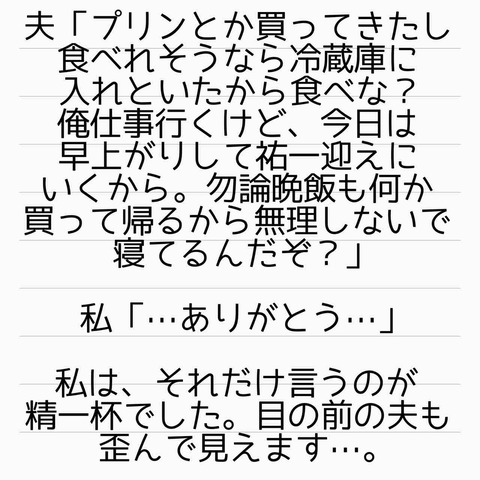 夫「プリンとか買ってきたし
食べれそうなら冷蔵庫に
入れといたから食べな？
俺仕事行くけど、今日は
早上がりして祐一迎えに
いくから。勿論晩飯も何か
買って帰るから無理しないで
寝てるんだぞ？」
私「…ありがとう…」
私は、それだけ言うのが
精一杯でした。目の前の夫も
歪んで見えます…。